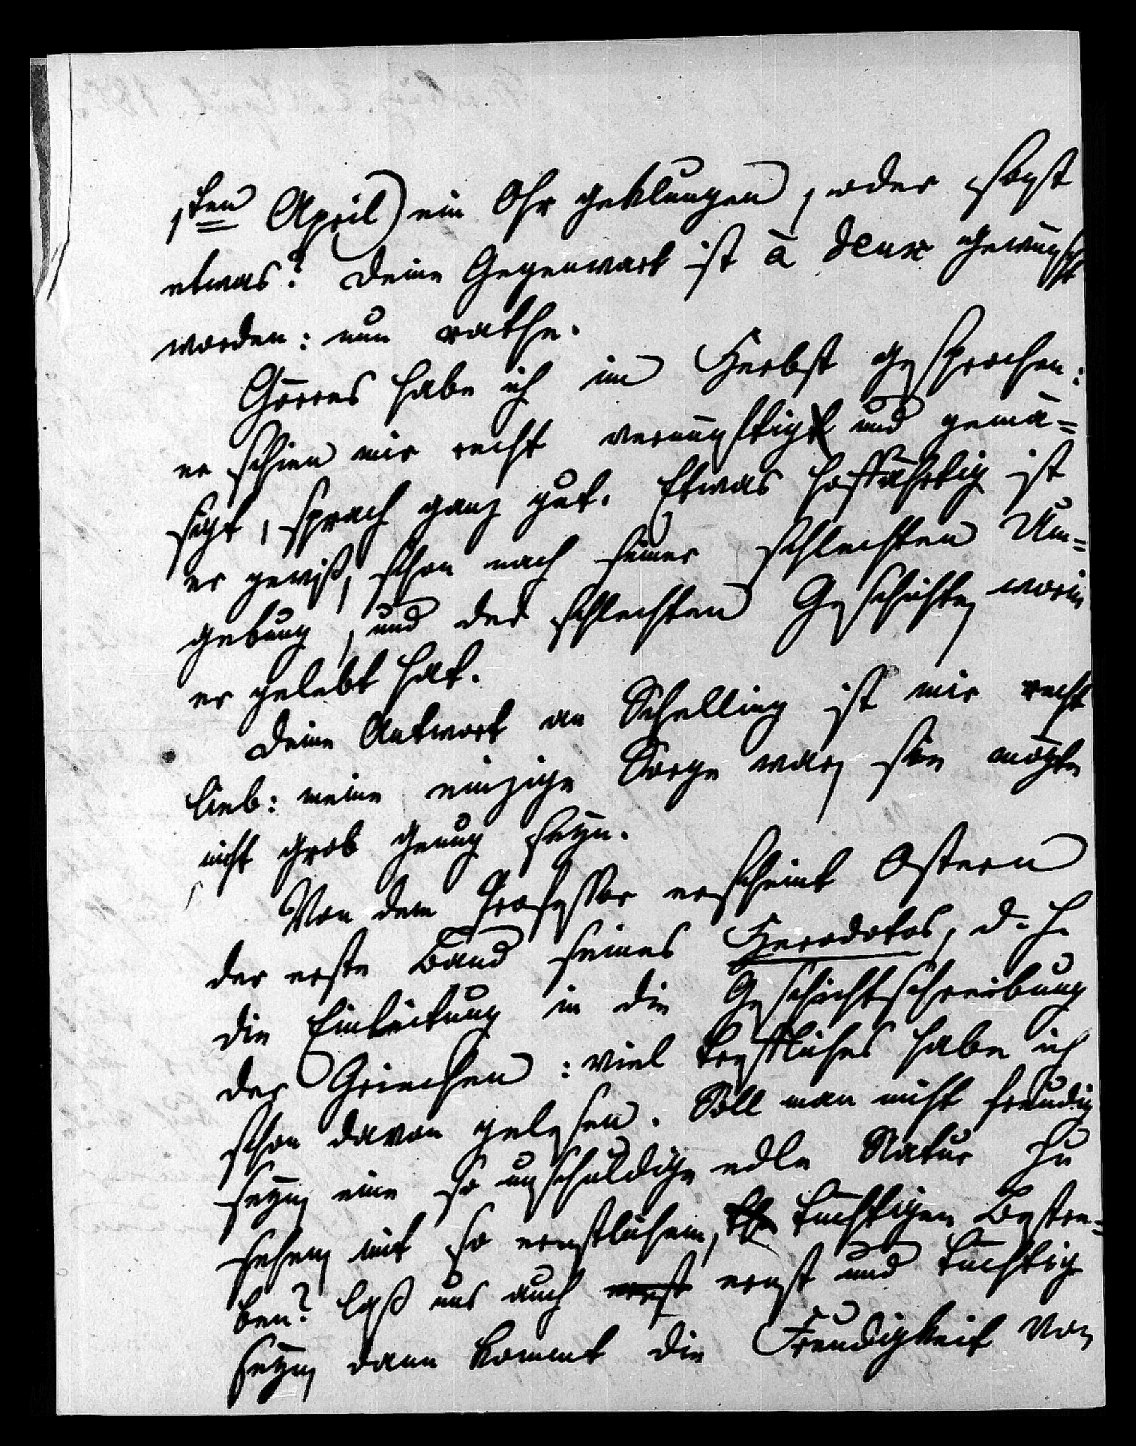 1sten April) ein Ohr geklungen, oder sonst
etwas? Deine Gegenwart ist à deux gewünscht
worden: nun rathe.
Görres habe ich im Herbst gesprochen:
er schien mir recht vernünftig und gemä=
ßigt, sprach ganz gut. Etwas hoffährtig ist
er gewiß, schon nach seiner schlechten Um=
gebung, und der schlechten Geschichte, worin
er gelebt hat.
Deine Antwort an Schelling ist mir recht
lieb: meine einzige Sorge war, sie mögte
nicht grob genug seyn.
Von dem Professor erscheint Ostern
der erste Band seines Herodotos, d. h.
die Einleitung in die Geschichtschreibung
der Griechen: viel treffliches habe ich
schon davon gelesen. Soll man nicht freudig
seyn, eine so unschuldige edle Natur zu
sehen, mit so ernstlichem, tüchtigen Bestre=
ben? laß uns auch ernst und tüchtig
seyn, dann kommt die Freudigkeit von